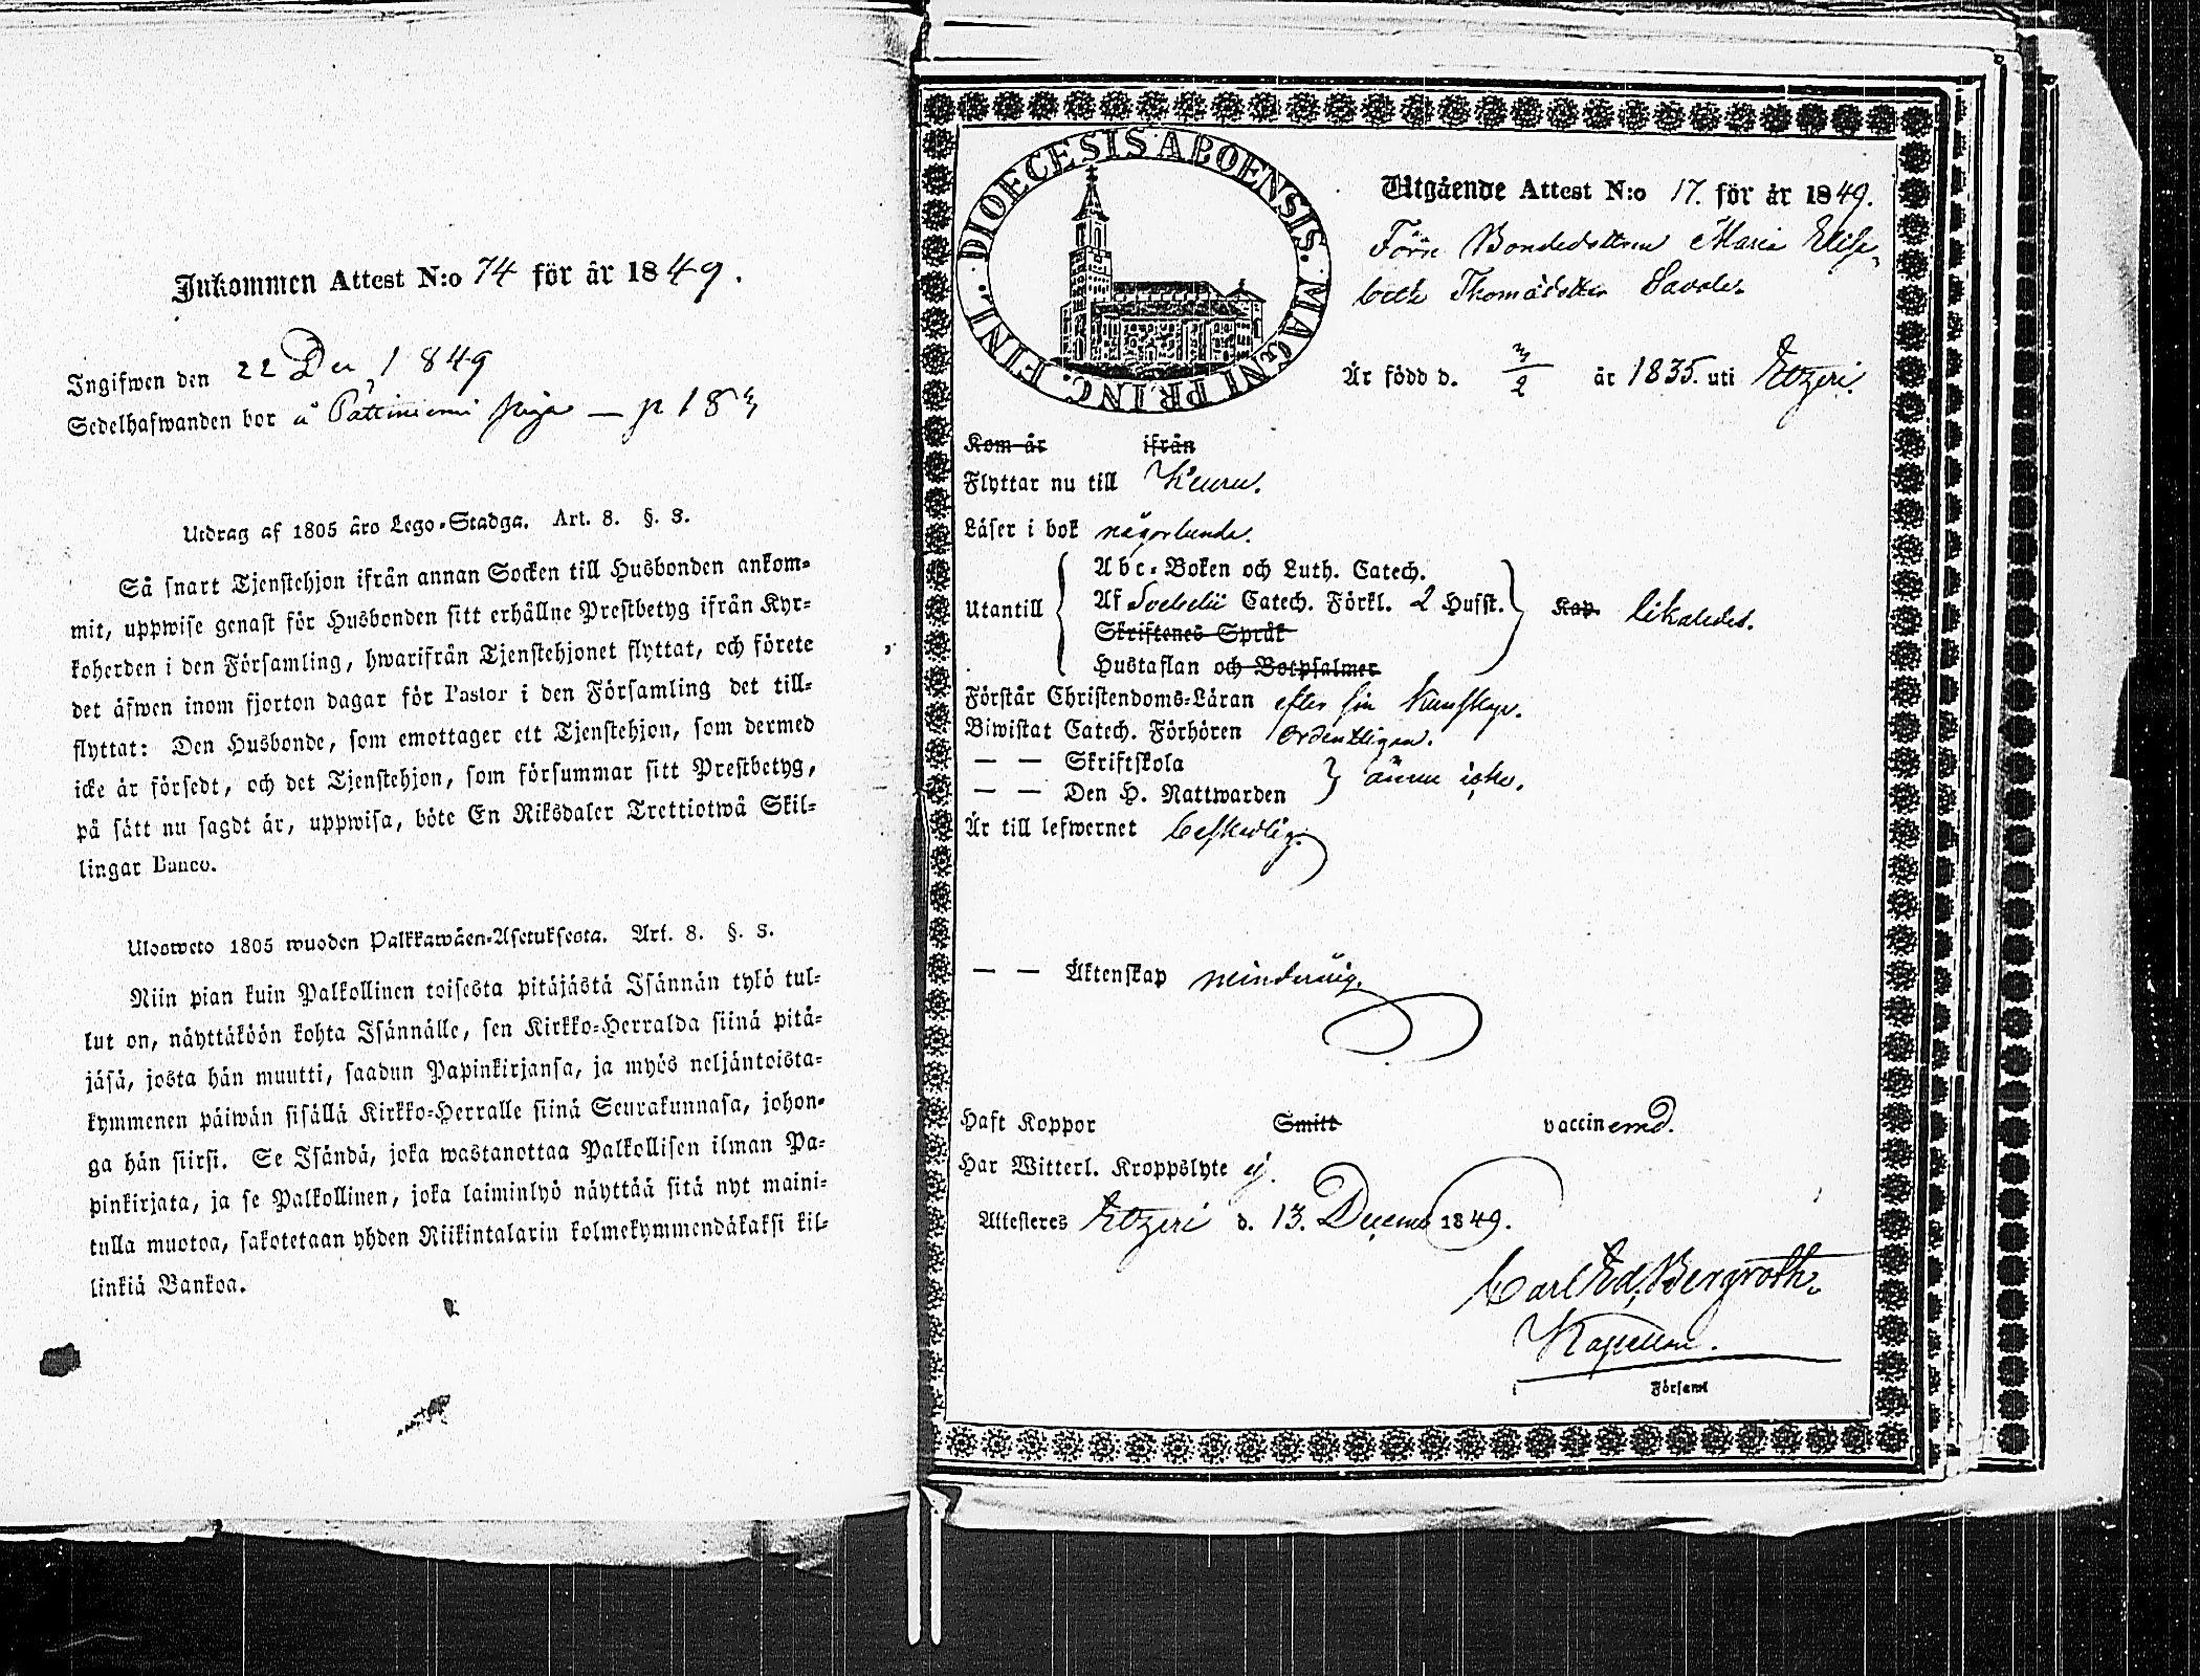 Inkommen Attest N:o 74 för år 1849.
Ingifwen den 22 Dec 1849
Sedelhafwanden bor å Pattiniemi piga — p 183
Utdrag af 1805 åro Lego-Stadga. Art. 8. §. 3.
Så snart Tjenstehjon ifrån annan Socken till Husbonden ankom-
mit, uppwise genast för Husbonden sitt erhållne Prestbetyg ifrån Kyr-
koherden i den Församling, hwarifrån Tjenstehjonet flyttat, och förete
det äfwen inom fjorton dagar för Pastor i den Församling det till-
flyttat: Den Husbonde, som emottager ett Tjenstehjon, som dermed
icke är försedt, och det Tjenstehjon, som försummar sitt Prestbetyg,
på sätt nu sagdt är, uppwisa, böte En Riksdaler Trettiotwå Skil-
lingar Banco.
Ulosweto 1805 wuoden Palkkawäen-Asetuksesta. Art. 8. §. 3.
Niin pian kuin Palkollinen toisesta pitäjästä Isännän tykö tul-
lut on, näyttäköön kohta Isännälle, sen Kirkko-Herralda siinä pitä-
jäsä, josta hän muutti, saadun Papinkirjansa, ja myös neljäntoista-
kymmenen päiwän sisällä Kirkko-Herralle siinä Seurakunnasa, johon-
ga hän siirsi. Se Isändä, joka wastanottaa Palkollisen ilman Pa-
pinkirjata, ja se Palkollinen, joka laiminlyö näyttää sitä nyt maini-
tulla muotoa, sakotetaan yhden Riikintalarin kolmekymmendäkaksi kil-
linkiä Bankoa.
DIOECESIS ABOENSIS. MAGNI PRINC. FINL.
Utgående Attest N:o 17. för år 1849.
Förre Bondedottren Maria Elisa-
beth Thomasdotter Savola
Är född d. 3/2 år 1835. uti Etzeri.
Kom år ifrån
Flyttar nu till Keuru.
Läser i bok någorlunda.
Utantill
Abc-Boken och Luth. Catech.
Af Svebelii Catech. Förkl. 2 Hufst. Kap. likaledes.
Skriftenes Språk
Hustaflan och Botpsalmer
Förstår Christendoms-Läran efter sin kunskap.
Biwistat Catech. Förhören ordentligen.
— — Skriftskola
— — Den H. Nattwarden ännu icke.
Är till lefwernet beskedlig.
— — Äktenskap minderårig.
Haft Koppor Smitt vaccinerad.
Har Witterl. Kroppslyte ej.
Attesteres Etzeri d. 13. Decemb 1849.
Carl Ed. Bergroth.
Kapellan.
Församl